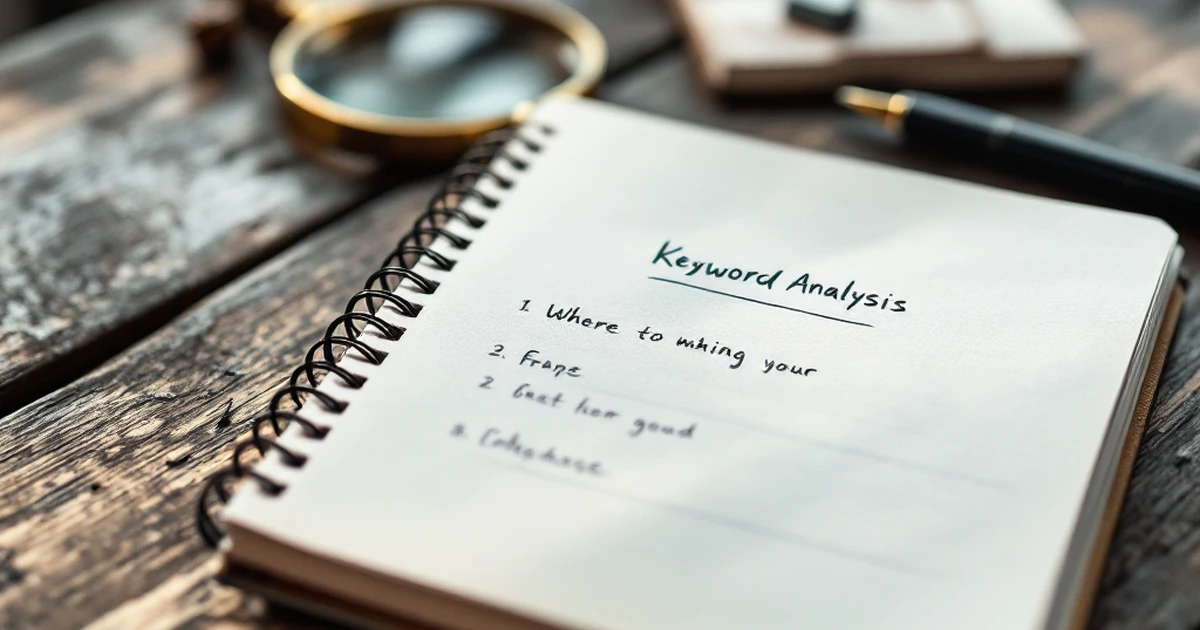 Keyword Analysis
1 Where to whing your
2. Franc
2 Geat her goud